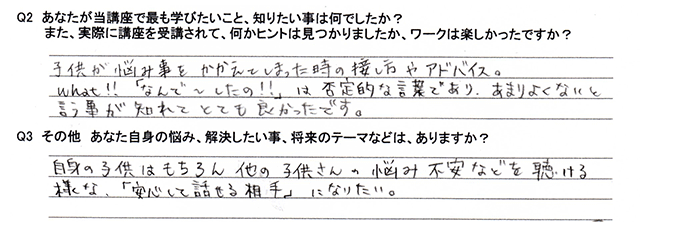 Q2 あなたが当講座で最も学びたいこと、知りたい事は何でしたか？
また、実際に講座を受講されて、何かヒントは見つかりましたか、ワークは楽しかったですか？
子供が悩み事をかかえてしまった時の接し方やアドバイス。
what!!「なんで～したの!!」は否定的な言葉であり、あまりよくないと
言う事が知れてとても良かったです。
Q3 その他 あなた自身の悩み、解決したい事、将来のテーマなどは、ありますか？
自身の子供はもちろん他の子供さんの悩み不安などを聴ける
様な、「安心して話せる相手」になりたい。